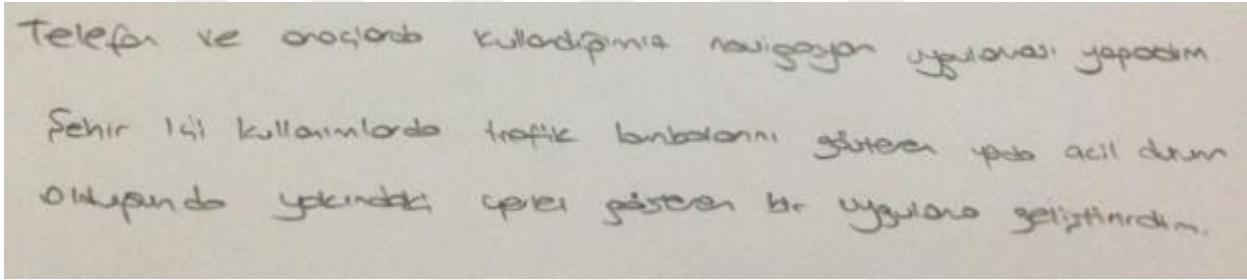 Telefon ve araçlarda kullandığımız navigasyon uygulaması yapardım
Şehir içi kullanımlarda trafik lambalarını gösteren yada acil durum
olduğunda yakındaki gösteren bir uygulama geliştirirdim.